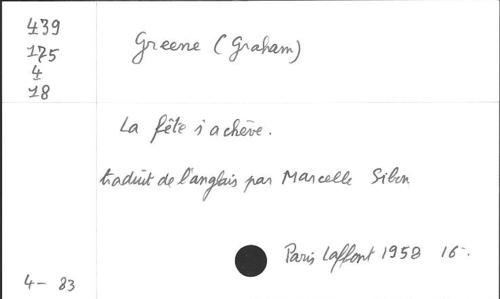 439
175
4
18
Greene (Graham)
La fête s'achève.
traduit de l'anglais par Marcelle Sibon
Paris Laffont 1958 16-.
4- 83